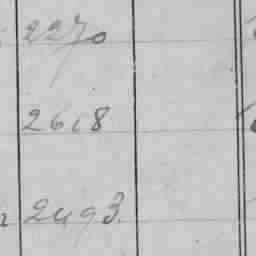 2270
2618
2493